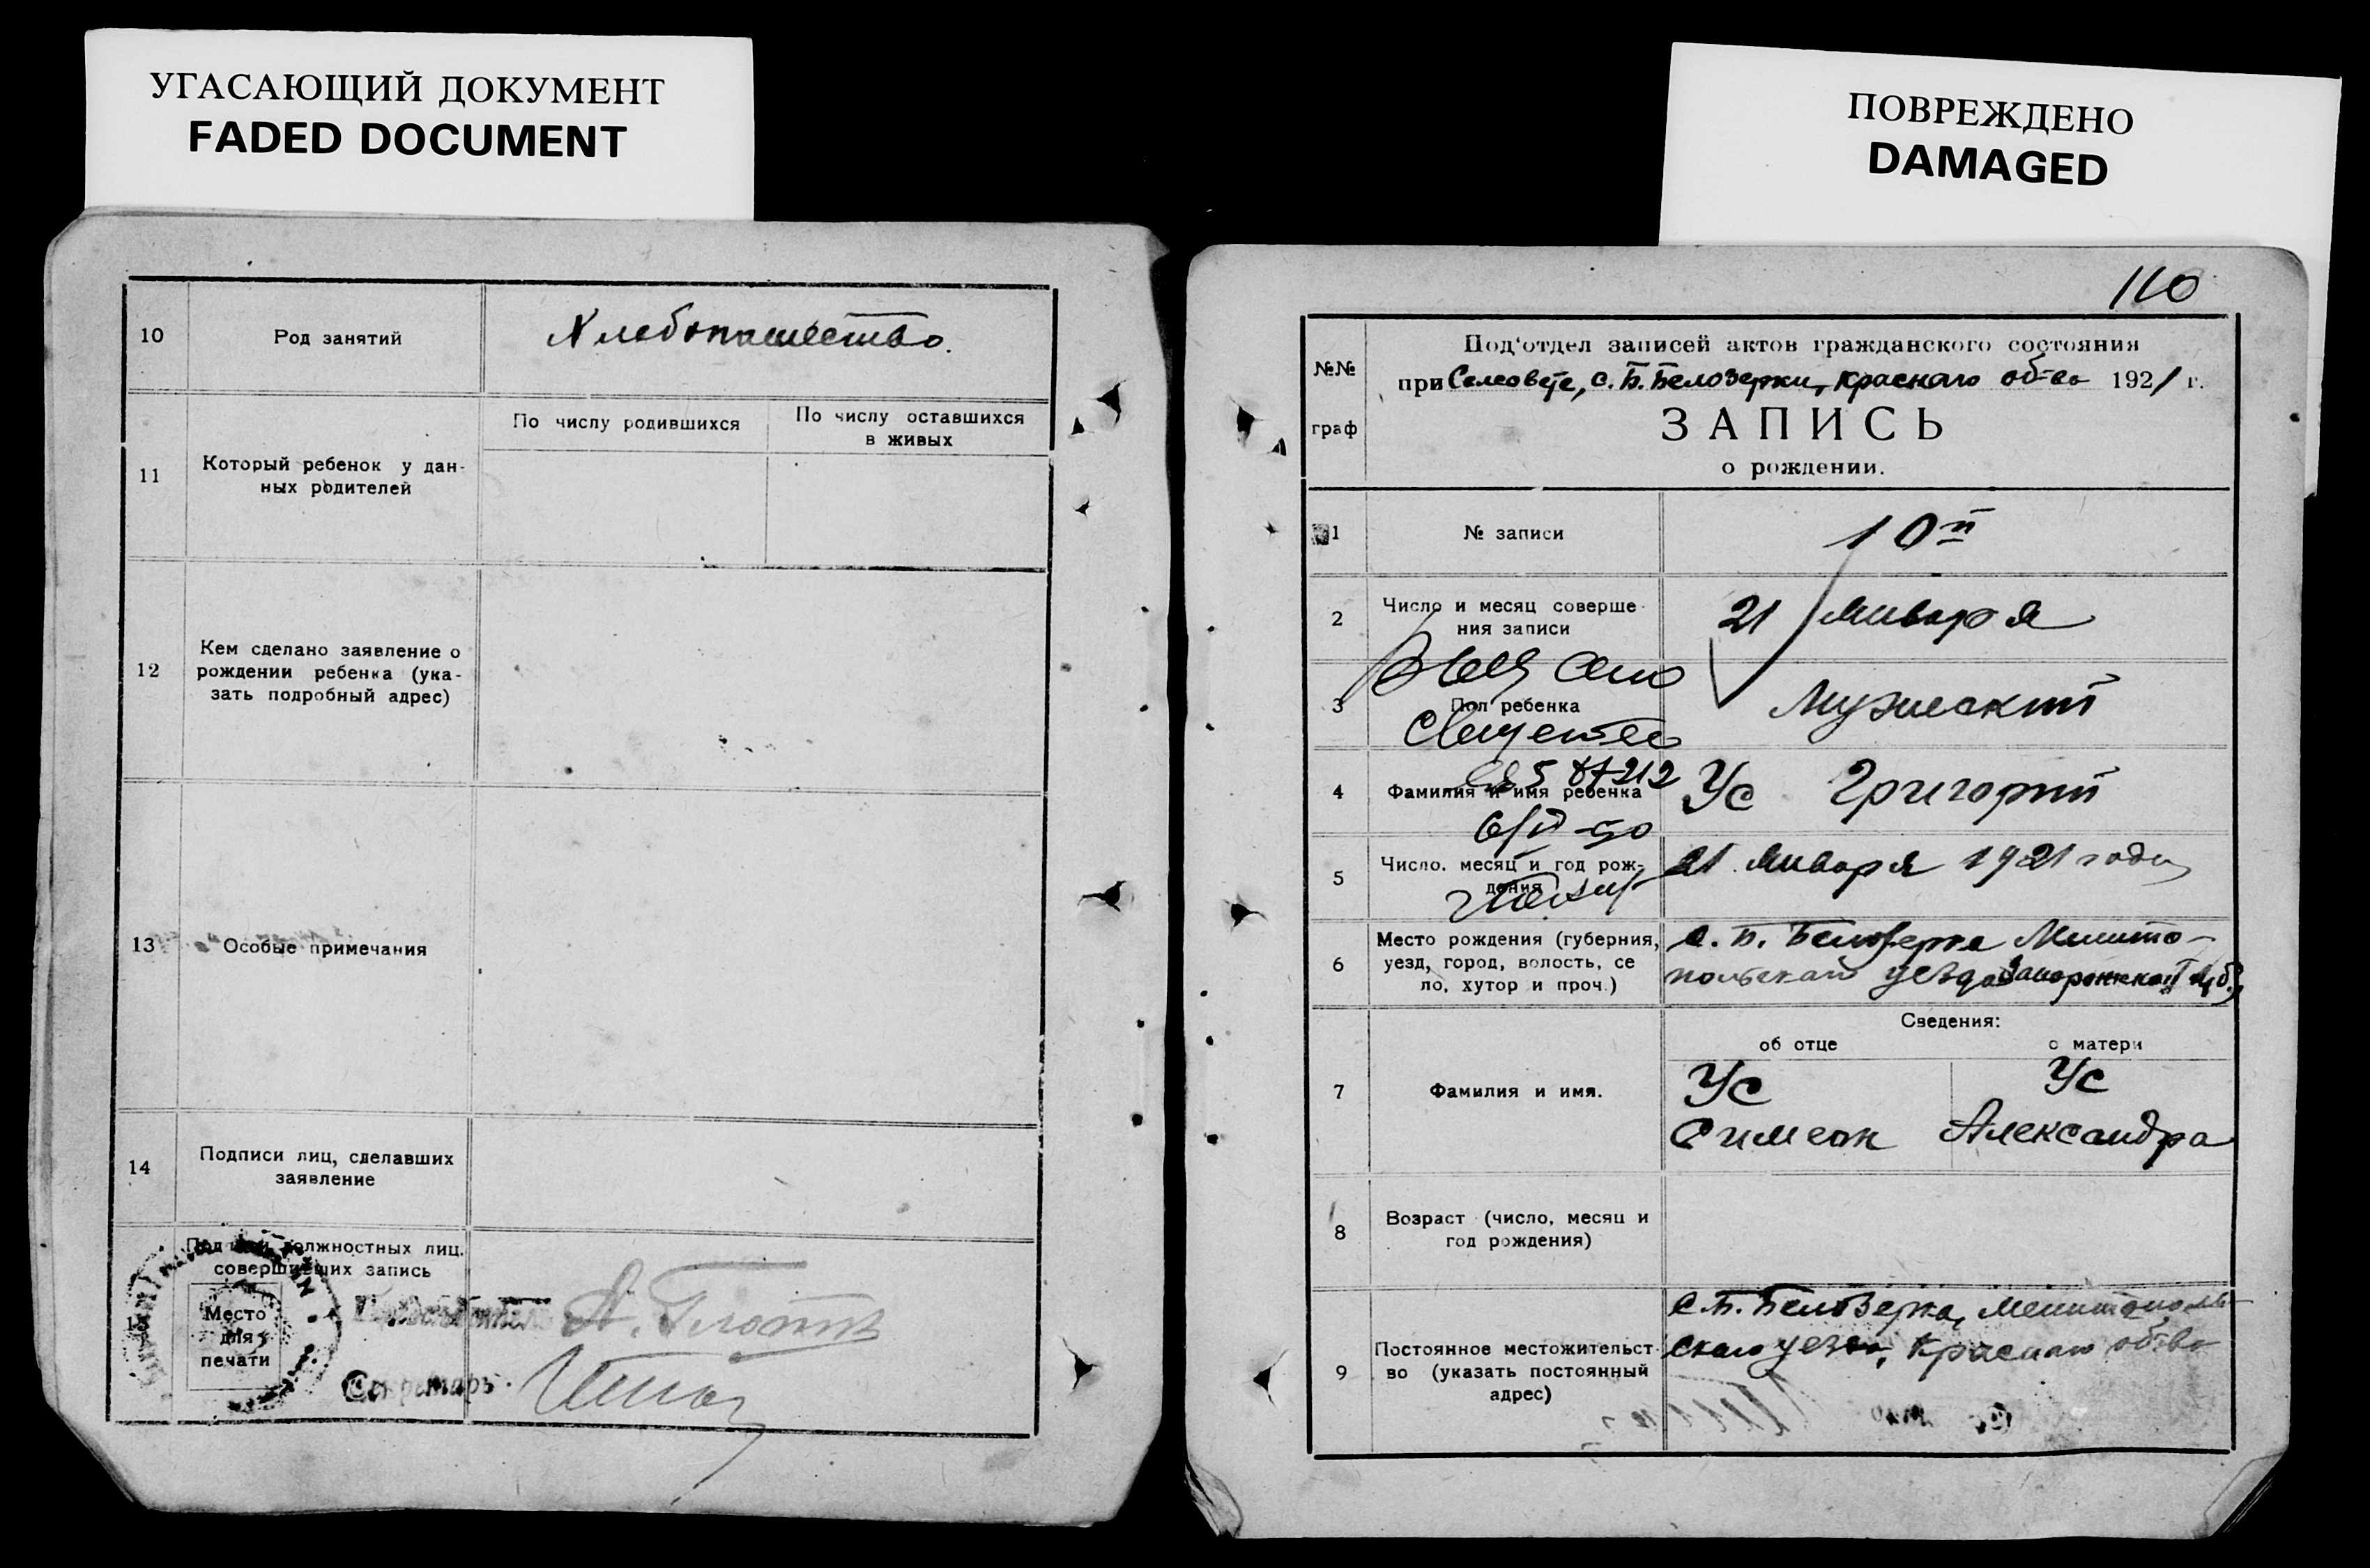 УГАСАЮЩИЙ ДОКУМЕНТ
FADED DOCUMENT
10
Род занятий
Хлебопашество.
11
Который ребенок у дан-
ных родителей
По числу родившихся
По числу оставшихся
в живых
12
Кем сделано заявление о
рождении ребенка (ука-
зать подробный адрес)
13
Особые примечания
14
Подписи лиц, сделавших
заявление
15
Подписи должностных лиц.
совершивших запись
Место
для
печати
Секретарь
ПОВРЕЖДЕНО
DAMAGED
110
№№
граф
Под'отдел записей актов гражданского состояния
при Сельсовете, с. Б. Белозерки, Краснаго об-ва 1921 г.
ЗАПИСЬ
о рождении.
1
№ записи
10й
2
Число и месяц соверше-
ния записи
21 Января
3
Пол ребенка
Мужеский
4
Фамилия и имя ребенка
Ус Григорий
5
Число, месяц и год рож-
дения
21 Января 1921 года
6
Место рождения (губерния,
уезд, город, волость, се
ло, хутор и проч.)
с. Б. Белозерка Мелито-
польскаго уезда Запорожской губ.
Сведения:
об отце
о матери
7
Фамилия и имя.
Ус
Симеон
Ус
Александра
8
Возраст (число, месяц и
год рождения)
9
Постоянное местожительст
во (указать постоянный
адрес)
с. Б. Белозерка, Мелитополь-
скаго уезда, Краснаго об-ва